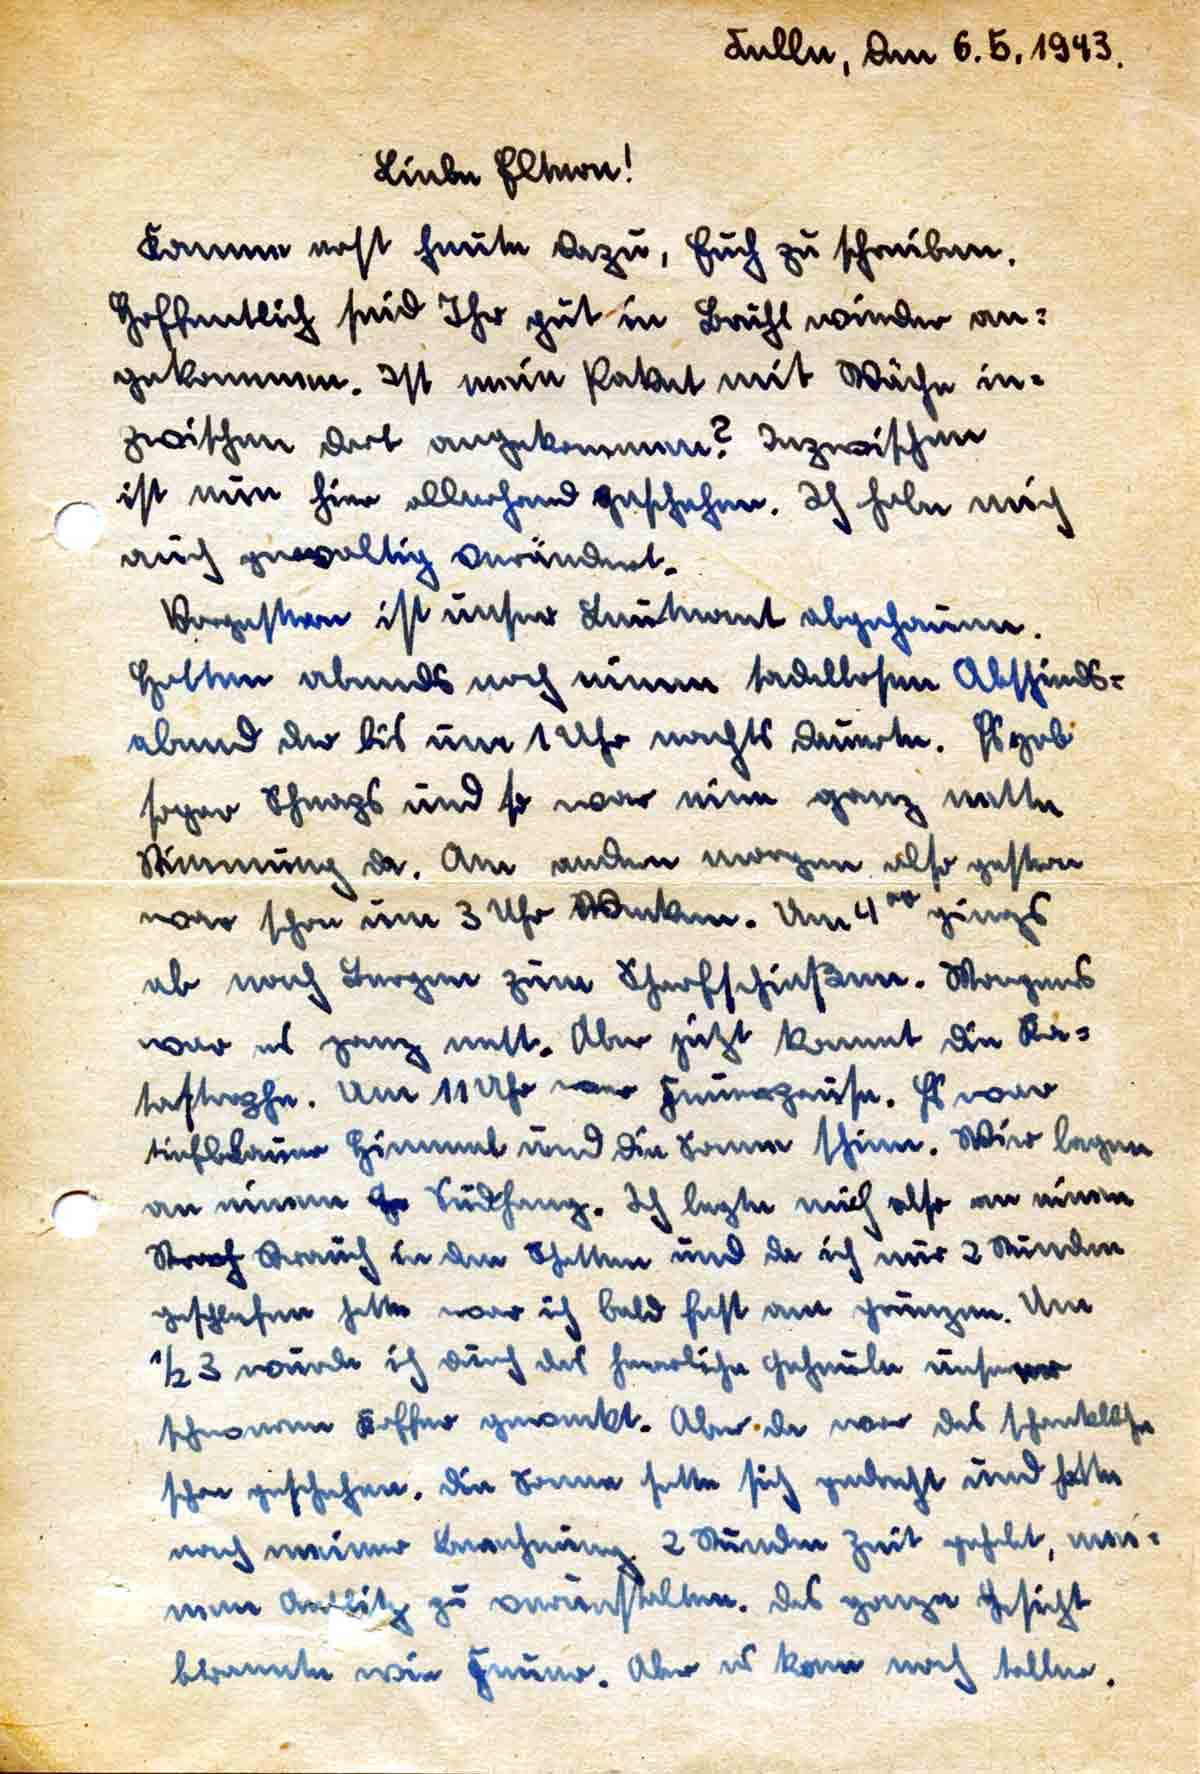 Fulle, den 6.5.1943.
Liebe Eltern!
Komme erst heute dazu, Euch zu schreiben.
Hoffentlich seid Ihr gut in Brühl wieder an=
gekommen. Ist mein Paket mit Wäche in=
zwischen dort angekommen? Inzwischen
ist nun hier allerhand geschehen. Ich habe mich
auch gewaltig verändert.
Vorgestern ist unser Leutnant abgehauen.
Hatten abends noch einen tadellosen Abschieds=
abend der bis um 1 Uhr nachts dauerte. Es gab
sogar Schnaps und so war eine ganz nette
Stimmung da. Am andern morgen also gestern
war schon um 3 Uhr Wecken. Um 4⁰⁰ gings
ab nach Bergen zum Scharfschießen. Morgens
war es ganz nett. Aber jetzt kommt die Ka=
tastrophe. Um 11 Uhr war Feuerpause. Es war
tiefblauer Himmel und die Sonne schien. Wir lagen
an einem Südhang. Ich legte mich also an einen
Strauch in den Schatten und da ich nur 2 Stunden
geschlafen hatte war ich bald fest am grunzen. Um
½ 3 wurde ich durch das herrliche Geheule unserer
schweren Koffer geweckt. Aber da war das schreckliche
schon geschehen. die Sonne hatte sich gedreht und hatte
nach meiner Berechnung 2 Stunden Zeit gehabt, mei=
nem Antlitz zu verunstalten. das ganze Gesicht
brannte wie Feuer. Aber es kam noch toller.